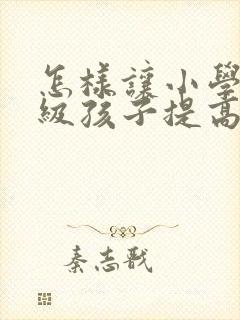 怎樣讓小學
級孩子提高
秦志戬